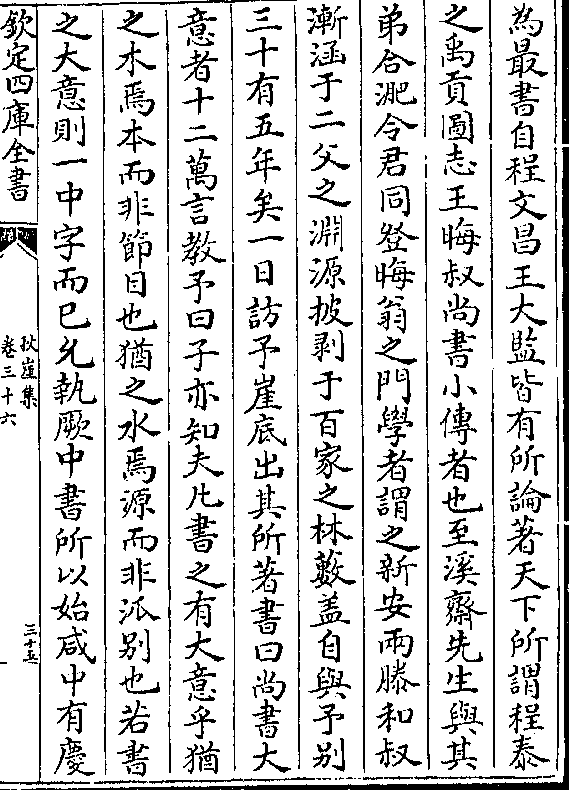 為最書自程文昌王大監皆有所論著天下所謂程泰
之禹貢圖志王晦叔尚書小傳者也至溪齋先生與其
弟合淝令君同登晦翁之門學者謂之新安兩滕和叔
漸涵于二父之淵源披剥于百家之林藪盖自與予别
三十有五年矣一日訪予崖底出其所著書曰尚書大
意者十二萬言教予曰子亦知夫凡書之有大意乎猶
之木焉本而非節目也猶之水焉源而非派别也若書
之大意則一中字而已允執厥中書所以始咸中有慶
欽定四庫全書
秋崖集
卷三十六
三十五